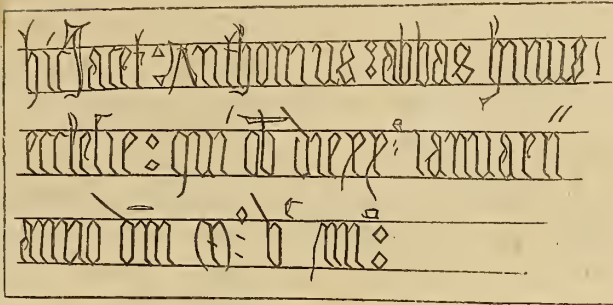 hic Jacet : Anthonius : abbas huius
ecclesie : qui obt die xx e : ianuarii
anno dom m : v c